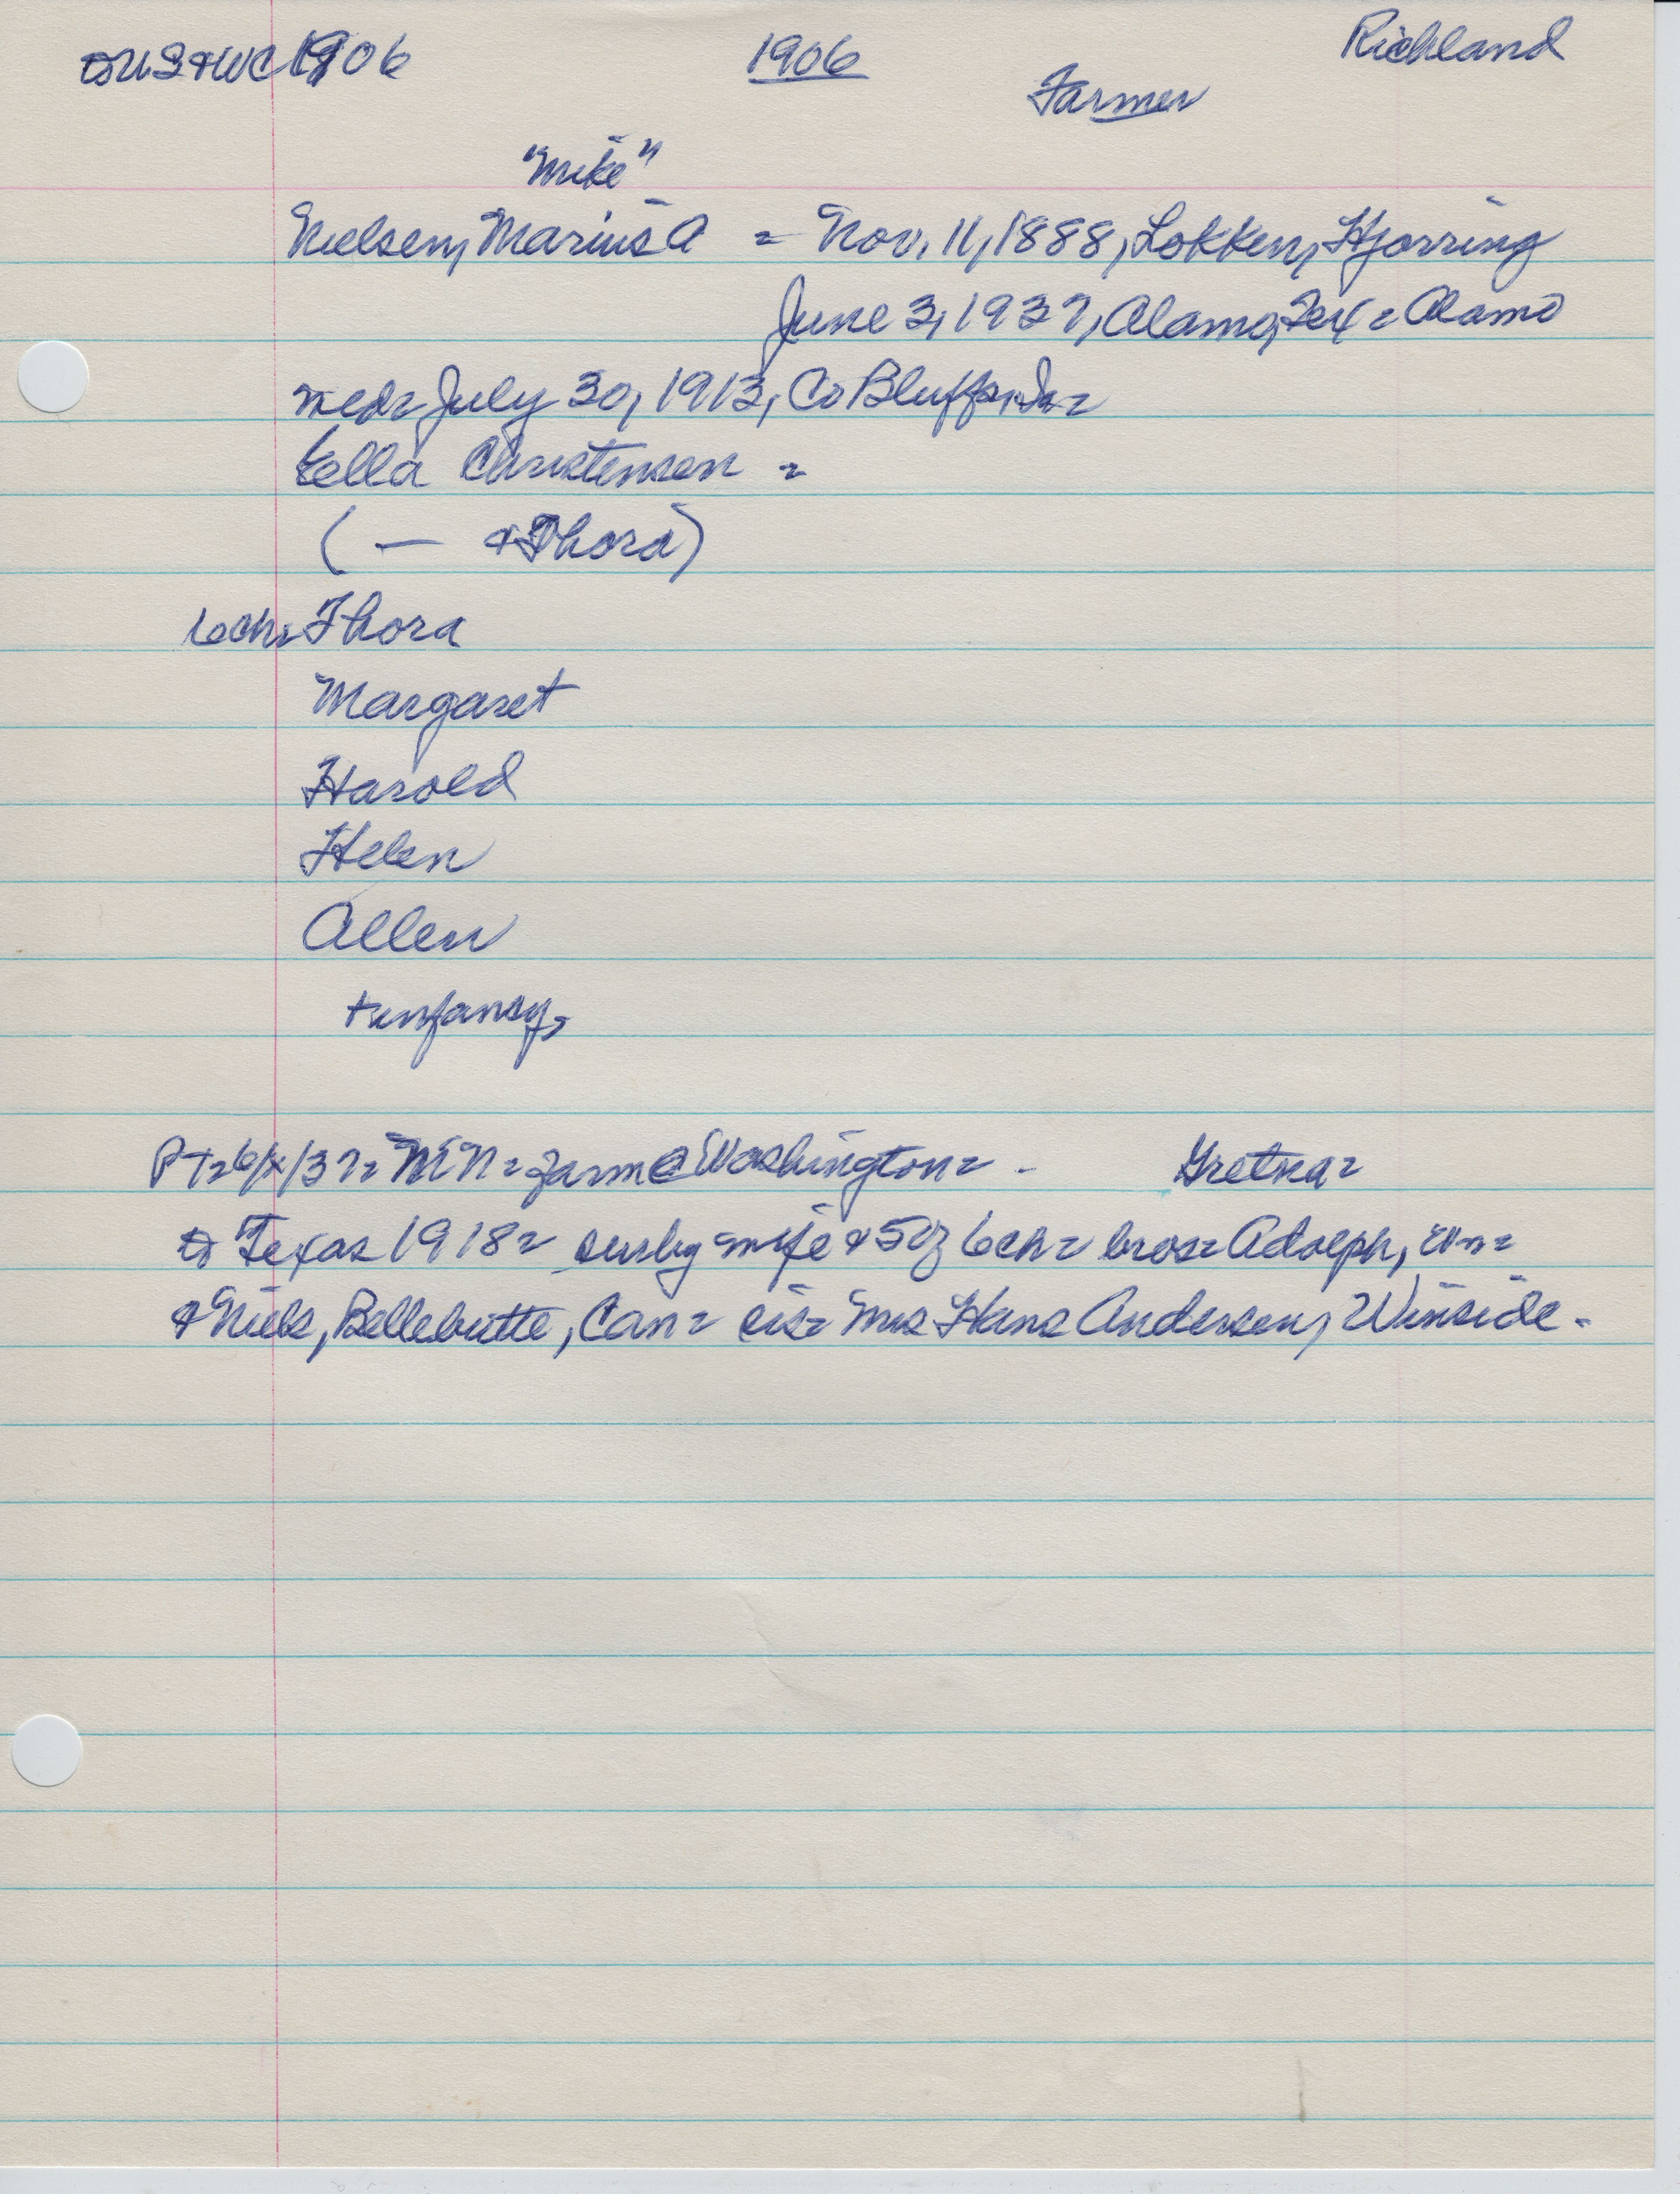 to US & WC 1906 1906 Richland
Farmer
"Mike"
Nielsen, Marius A = Nov. 11, 1888, Lokken, Hjorring
June 3, 1937, Alamo, Tex = Alamo
wed = July 30, 1913, Co Bluffs, Ia =
Ella Christensen =
( — & Thora)
6 ch = Thora
Margaret
Harold
Helen
Allen
+ infancy,
PT = 6/ /37 = = farm @ Washington = - Gretna =
to Texas 1918 = surby = wife & 5 of 6 ch = bros = Adolph, Wn =
& Niels, Bellebutte, Can = sis = Mrs Hans Andersen, Winside -